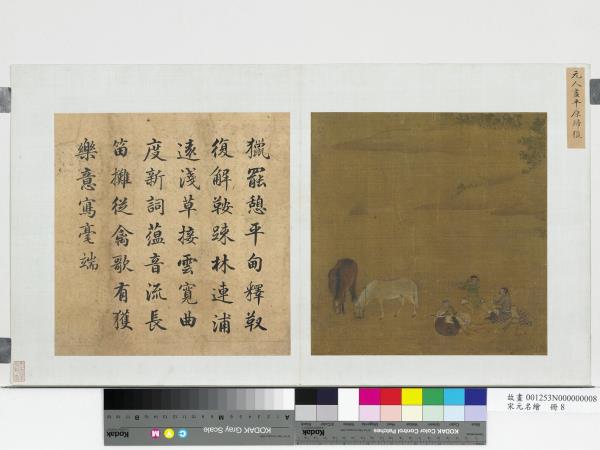 元人畫平原歸獵
獵罷憩平甸釋馭
復解鞍疎林連浦
遠淺草接雲寬曲
度新詞蘊音流長
笛攤從禽歌有獲
樂意寫毫端
Kodak
KODAK Gray Scale
C Y M
KODAK Color Control Patches
Kodak
故畫 001253N000000008
宋元名繪 冊 8